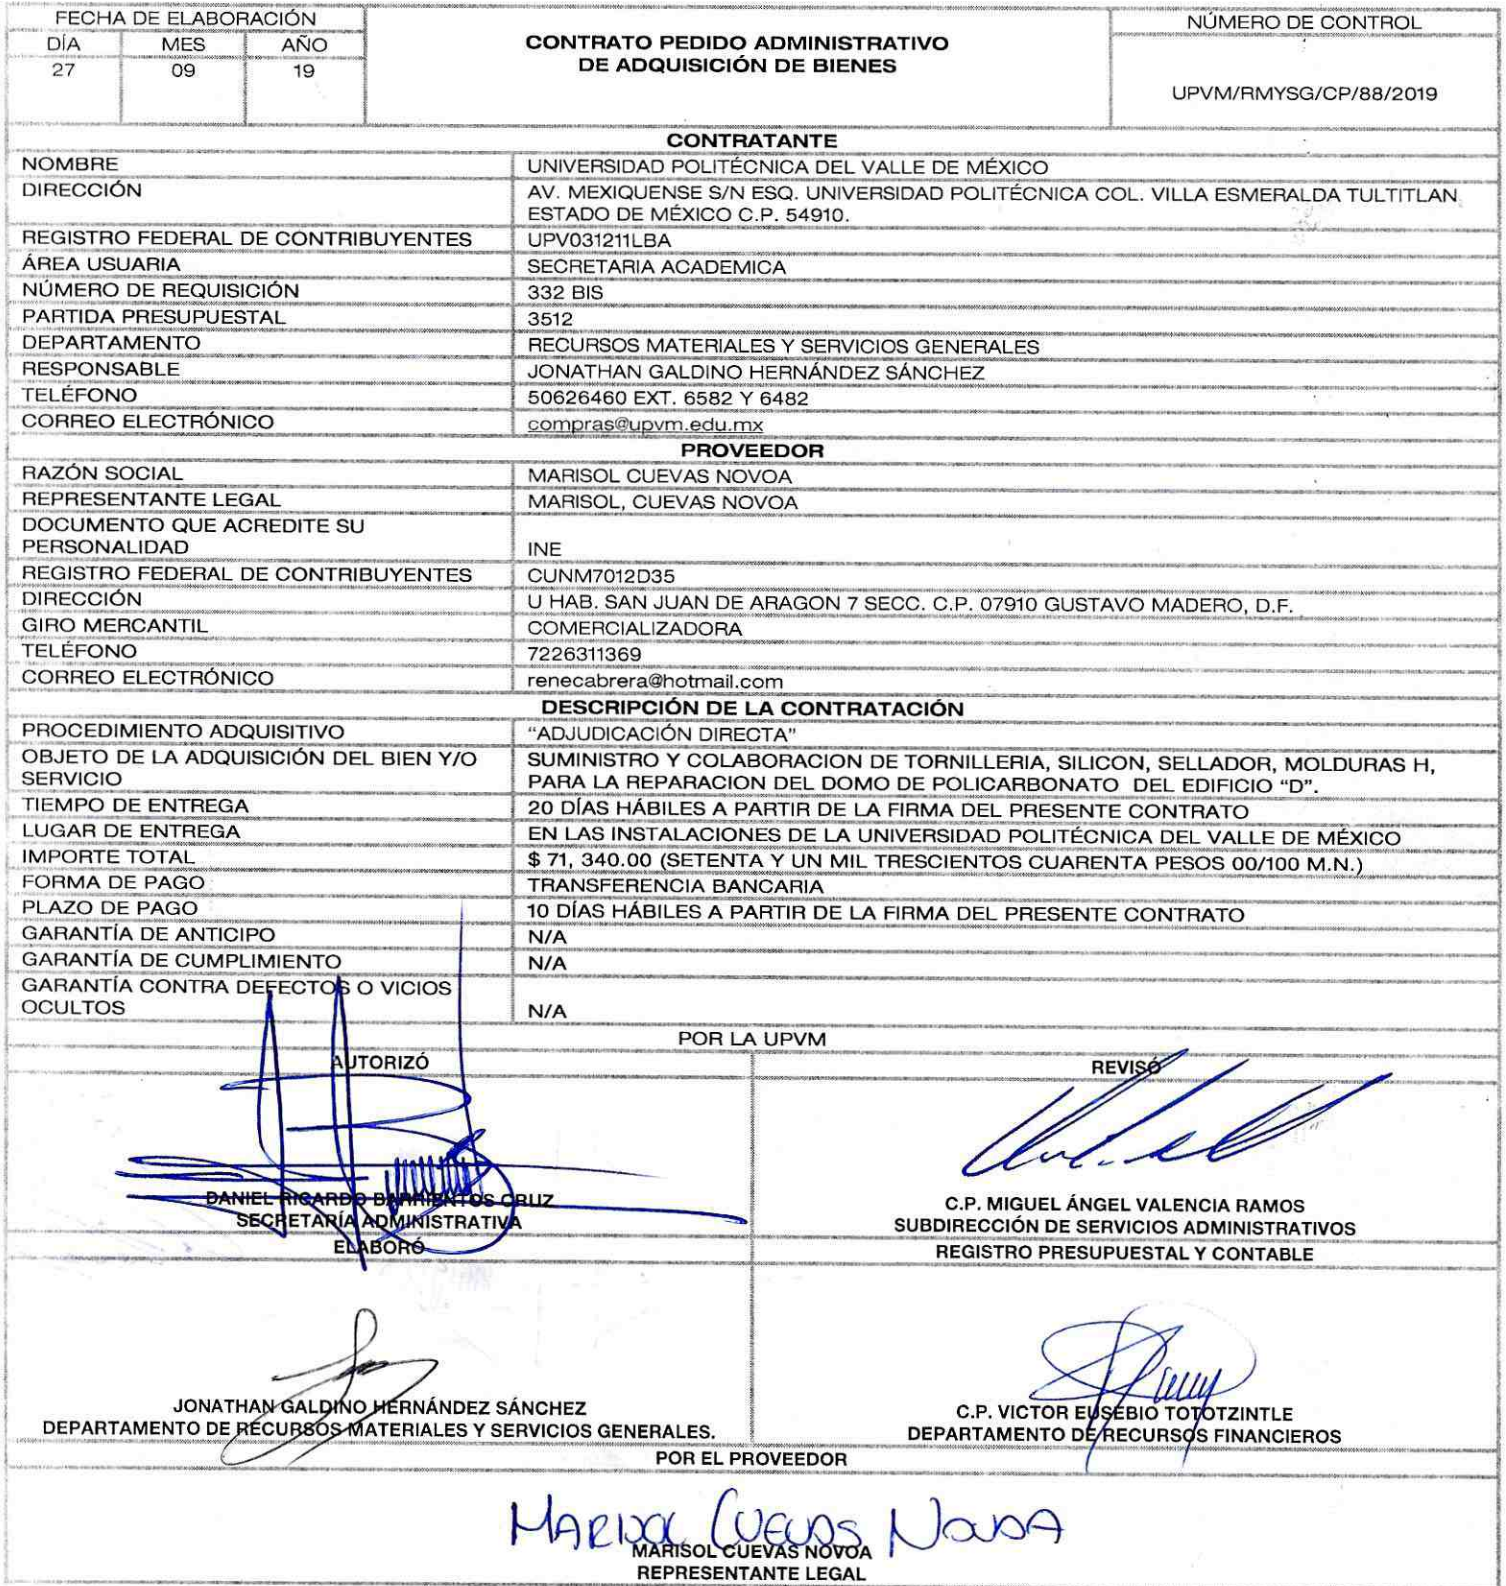 FECHA DE ELABORACIÓN
DÍA MES AÑO
27 09 19
CONTRATO PEDIDO ADMINISTRATIVO
DE ADQUISICIÓN DE BIENES
NÚMERO DE CONTROL
UPVM/RMYSG/CP/88/2019
CONTRATANTE
NOMBRE UNIVERSIDAD POLITÉCNICA DEL VALLE DE MÉXICO
DIRECCIÓN AV. MEXIQUENSE S/N ESQ. UNIVERSIDAD POLITÉCNICA COL. VILLA ESMERALDA TULTITLAN
ESTADO DE MÉXICO C.P. 54910.
REGISTRO FEDERAL DE CONTRIBUYENTES UPV031211LBA
ÁREA USUARIA SECRETARIA ACADEMICA
NÚMERO DE REQUISICIÓN 332 BIS
PARTIDA PRESUPUESTAL 3512
DEPARTAMENTO RECURSOS MATERIALES Y SERVICIOS GENERALES
RESPONSABLE JONATHAN GALDINO HERNÁNDEZ SÁNCHEZ
TELÉFONO 50626460 EXT. 6582 Y 6482
CORREO ELECTRÓNICO compras@upvm.edu.mx
PROVEEDOR
RAZÓN SOCIAL MARISOL CUEVAS NOVOA
REPRESENTANTE LEGAL MARISOL, CUEVAS NOVOA
DOCUMENTO QUE ACREDITE SU
PERSONALIDAD INE
REGISTRO FEDERAL DE CONTRIBUYENTES CUNM7012D35
DIRECCIÓN U HAB. SAN JUAN DE ARAGON 7 SECC. C.P. 07910 GUSTAVO MADERO, D.F.
GIRO MERCANTIL COMERCIALIZADORA
TELÉFONO 7226311369
CORREO ELECTRÓNICO renecabrera@hotmail.com
DESCRIPCIÓN DE LA CONTRATACIÓN
PROCEDIMIENTO ADQUISITIVO "ADJUDICACIÓN DIRECTA"
OBJETO DE LA ADQUISICIÓN DEL BIEN Y/O
SERVICIO
SUMINISTRO Y COLABORACION DE TORNILLERIA, SILICON, SELLADOR, MOLDURAS H,
PARA LA REPARACION DEL DOMO DE POLICARBONATO DEL EDIFICIO "D".
TIEMPO DE ENTREGA 20 DÍAS HÁBILES A PARTIR DE LA FIRMA DEL PRESENTE CONTRATO
LUGAR DE ENTREGA EN LAS INSTALACIONES DE LA UNIVERSIDAD POLITÉCNICA DEL VALLE DE MÉXICO
IMPORTE TOTAL $ 71, 340.00 (SETENTA Y UN MIL TRESCIENTOS CUARENTA PESOS 00/100 M.N.)
FORMA DE PAGO TRANSFERENCIA BANCARIA
PLAZO DE PAGO 10 DÍAS HÁBILES A PARTIR DE LA FIRMA DEL PRESENTE CONTRATO
GARANTÍA DE ANTICIPO N/A
GARANTÍA DE CUMPLIMIENTO N/A
GARANTÍA CONTRA DEFECTOS O VICIOS
OCULTOS N/A
POR LA UPVM
AUTORIZÓ
DANIEL RICARDO BARRIENTOS CRUZ
SECRETARÍA ADMINISTRATIVA
REVISÓ
C.P. MIGUEL ÁNGEL VALENCIA RAMOS
SUBDIRECCIÓN DE SERVICIOS ADMINISTRATIVOS
ELABORÓ
JONATHAN GALDINO HERNÁNDEZ SÁNCHEZ
DEPARTAMENTO DE RECURSOS MATERIALES Y SERVICIOS GENERALES.
REGISTRO PRESUPUESTAL Y CONTABLE
C.P. VICTOR EUSEBIO TOTOTZINTLE
DEPARTAMENTO DE RECURSOS FINANCIEROS
POR EL PROVEEDOR
MARISOL CUEVAS NOVOA
MARISOL CUEVAS NOVOA
REPRESENTANTE LEGAL